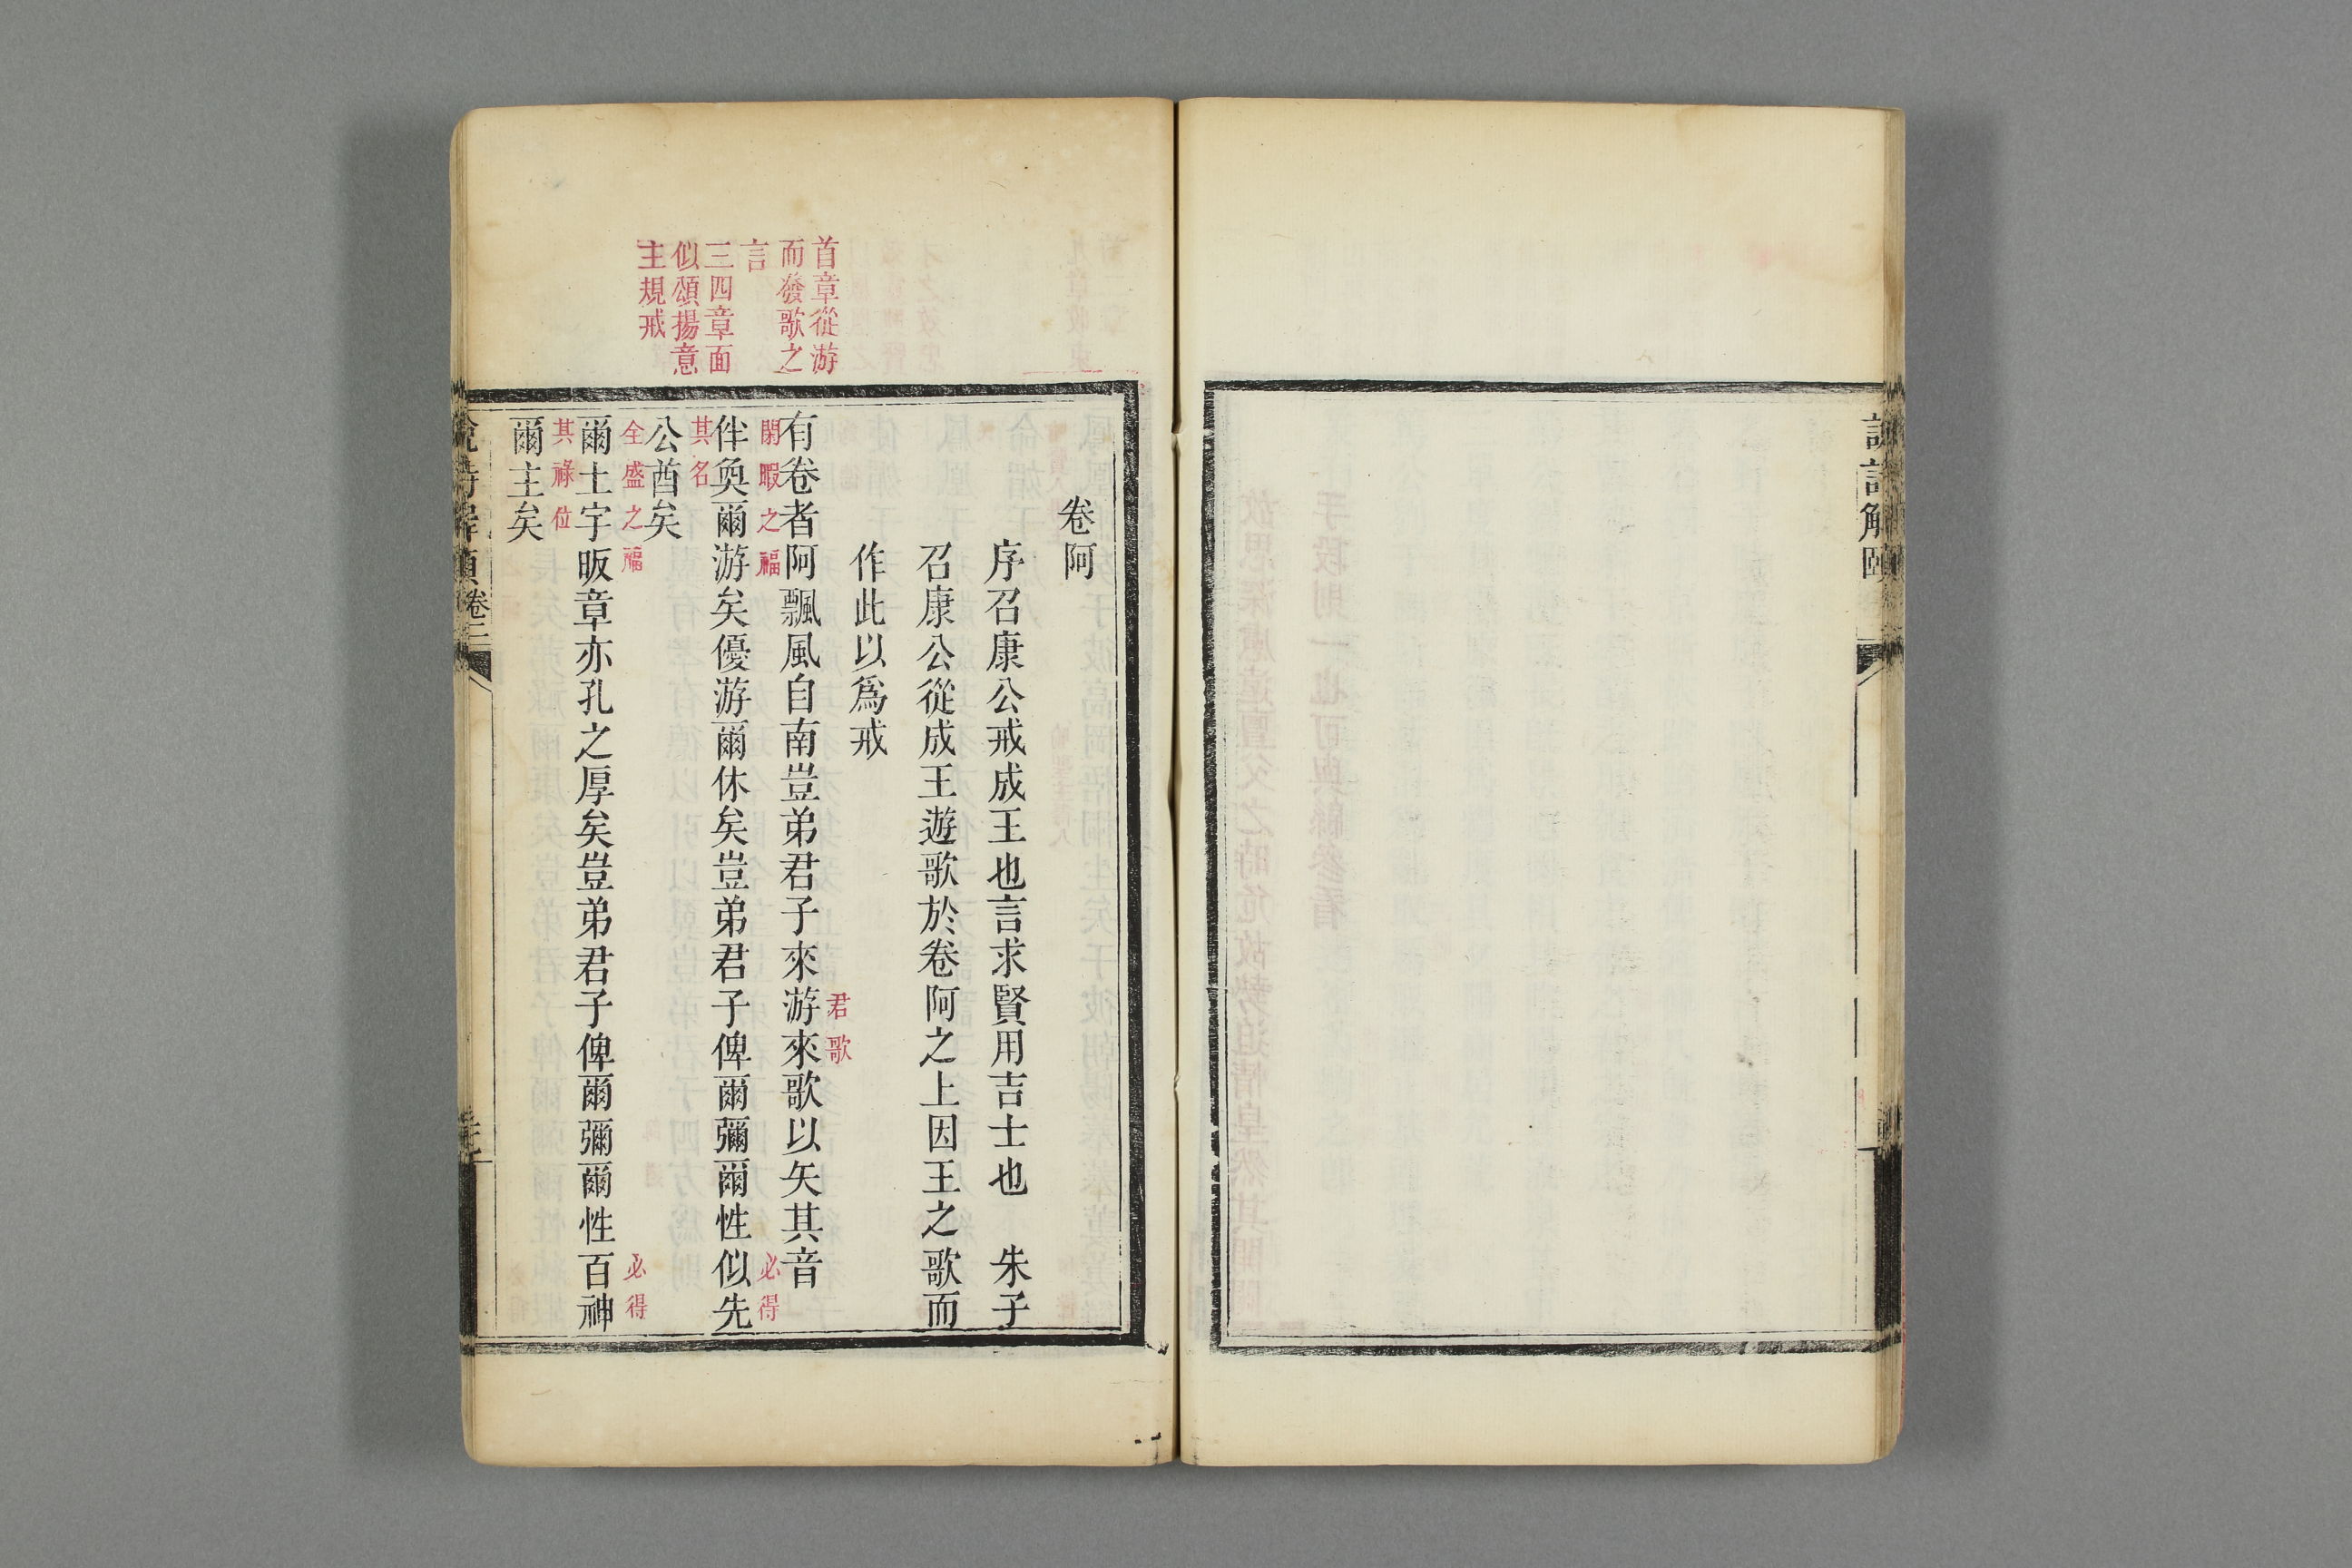 說詩解頤
卷阿
序召康公戒成王也言求賢用吉士也　朱子
召康公從成王遊歌於卷阿之上因王之歌而
作此以爲戒
首章從游
而發歌之
言
三四章面
似頌揚意
主規戒
君歌
有卷者阿飄風自南豈弟君子來游來歌以矢其音
閑暇之福
必得
伴奐爾游矣優游爾休矣豈弟君子俾爾彌爾性似先
其名
公酋矣
全盛之福
必得
爾土宇昄章亦孔之厚矣豈弟君子俾爾彌爾性百神
其祿位
爾主矣
卷二